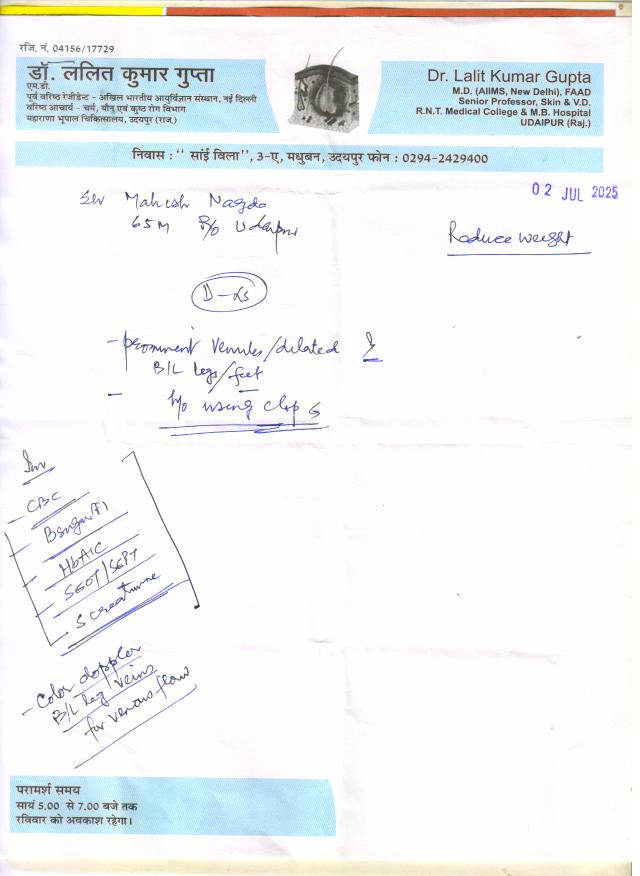 रजि. नं. 04156/17729
डॉ. ललित कुमार गुप्ता
एम.डी.
पूर्व वरिष्ठ रेजीडेन्ट - अखिल भारतीय आयुर्विज्ञान संस्थान, नई दिल्ली
वरिष्ठ आचार्य - चर्म, यौन एवं कुष्ठ रोग विभाग
महाराणा भूपाल चिकित्सालय, उदयपुर (राज.)
Dr. Lalit Kumar Gupta
M.D. (AIIMS, New Delhi), FAAD
Senior Professor, Skin & V.D.
R.N.T. Medical College & M.B. Hospital
UDAIPUR (Raj.)
निवास : " सांई विला", 3-ए, मधुबन, उदयपुर फोन : 0294-2429400
02 JUL 2025
Mahesh Nagda
65M R/o Udaipur
Reduce weight
- prominent venules/dilated
B/L legs/feet
- h/o using
Inv
- CBC
- Bsugar(F)
- HbA1C
- SGOT/SGPT
- S creatinine
- Color doppler
B/L leg veins
for venous flow
परामर्श समय
सायं 5.00 से 7.00 बजे तक
रविवार को अवकाश रहेगा।